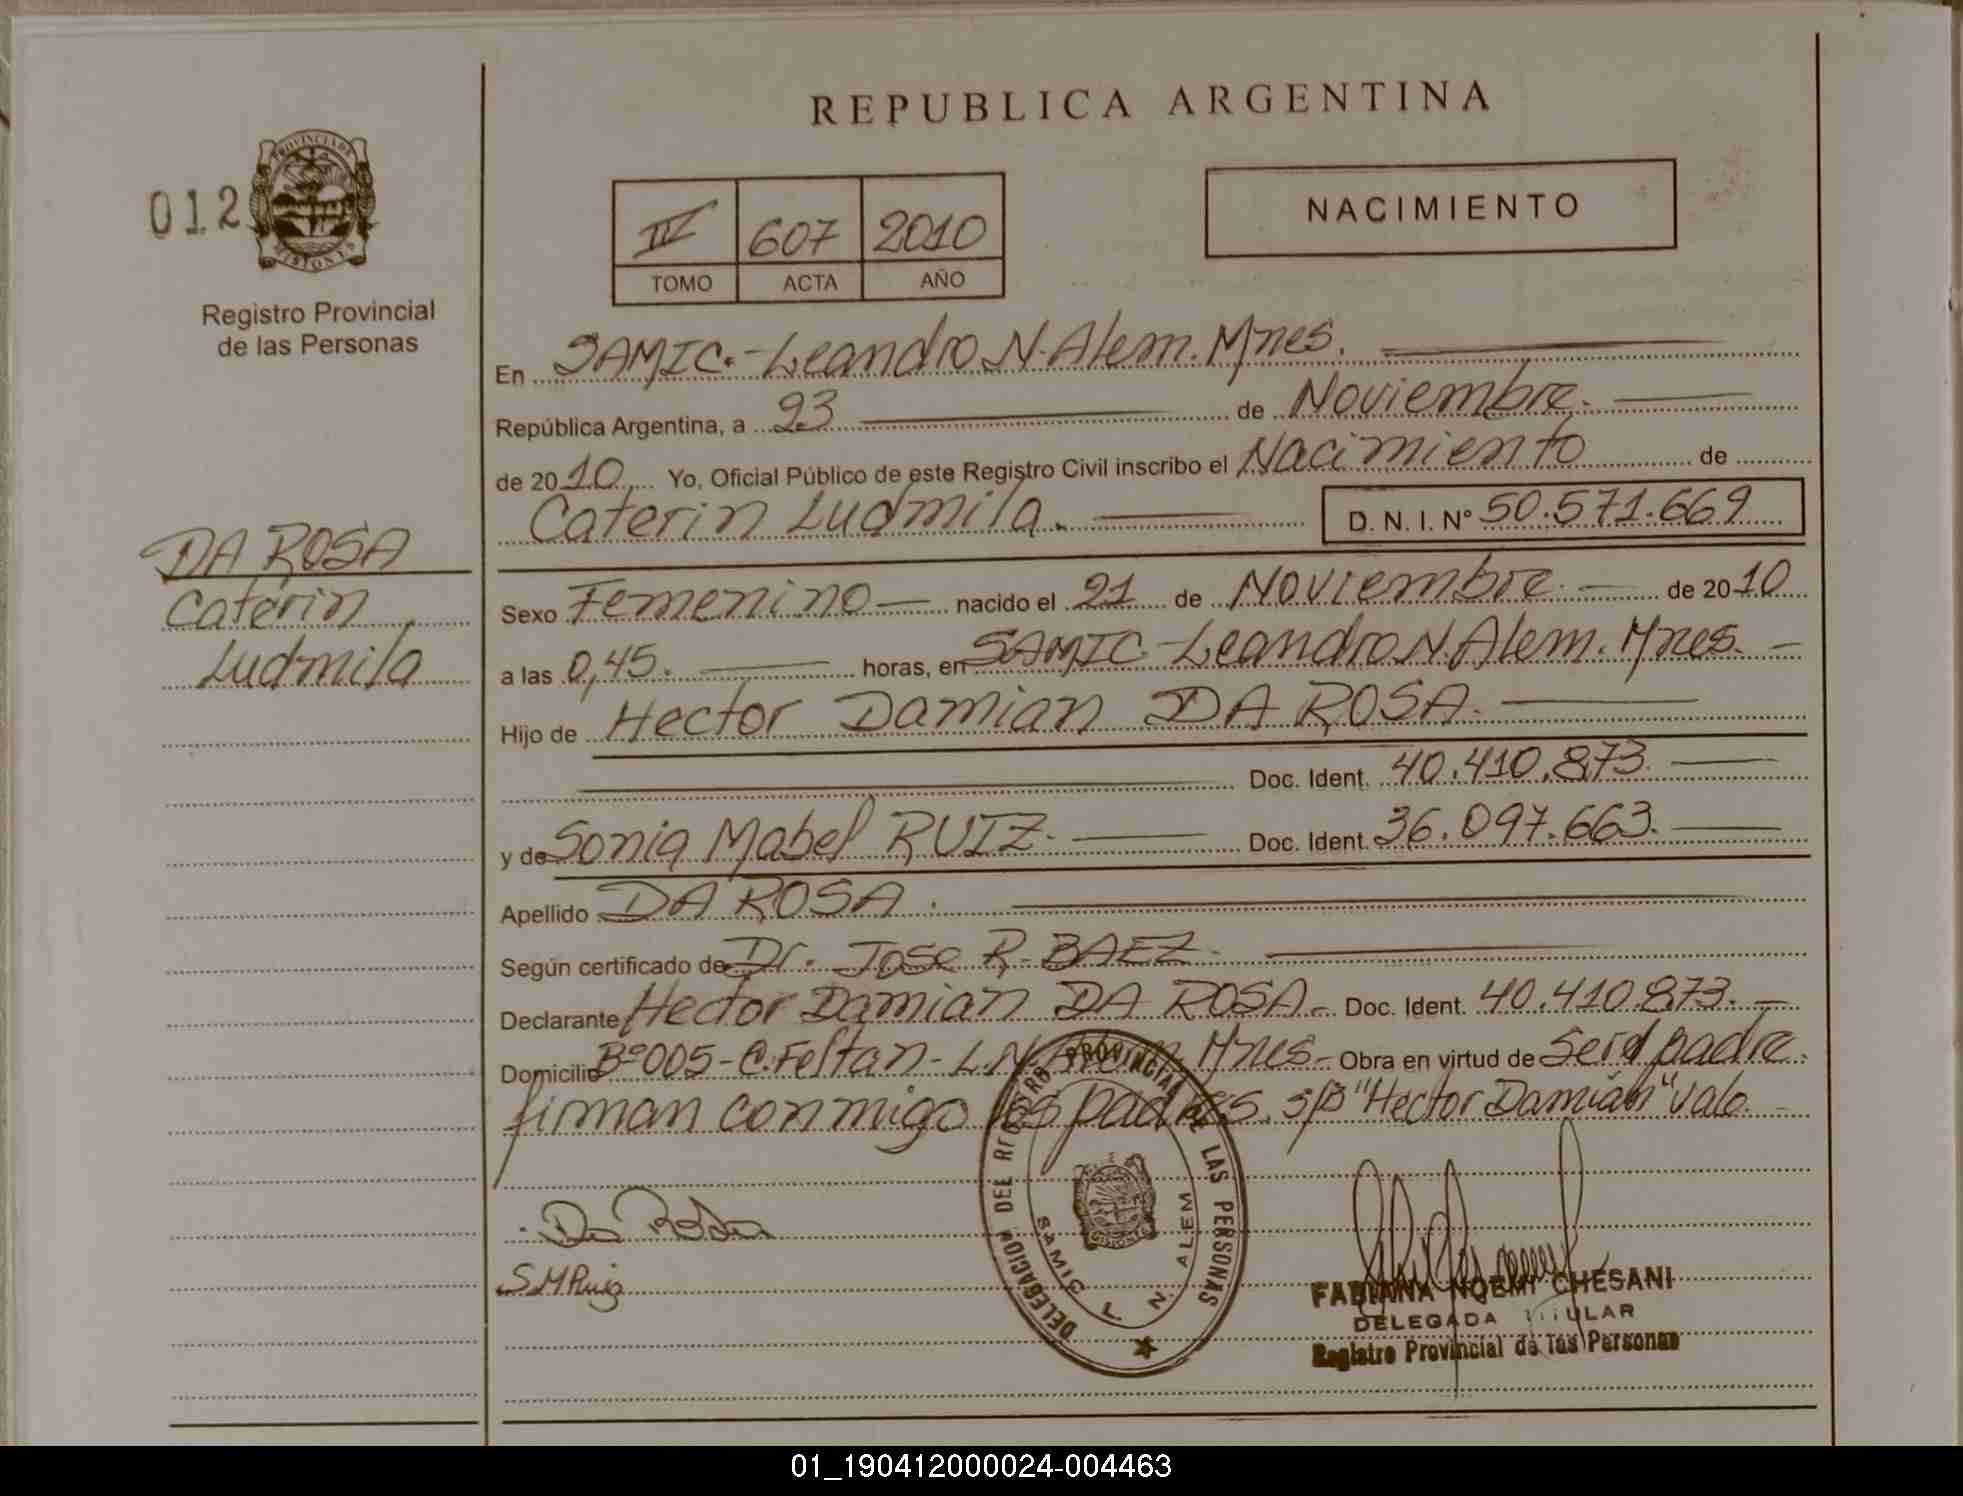 REPUBLICA ARGENTINA
012
PROVINCIA DE
MISIONES
Registro Provincial
de las Personas
IV 607 2010
TOMO ACTA AÑO
NACIMIENTO
En SAMIC.-Leandro N. Alem. Mnes.
República Argentina, a 23 de Noviembre.
de 2010. Yo, Oficial Público de este Registro Civil inscribo el Nacimiento de
Caterin Ludmila. D. N. I. Nº 50.571.669
DA ROSA
Caterin
Ludmila
Sexo Femenino nacido el 21 de Noviembre. de 2010
a las 0,45. horas, en SAMIC-Leandro N. Alem. Mnes.
Hijo de Hector Damian DA ROSA.
Doc. Ident. 40.410.873.
y de Sonia Mabel RUIZ. Doc. Ident. 36.097.663.
Apellido DA ROSA.
Según certificado de Dr. Jose R. BAEZ.
Declarante Hector Damian DA ROSA. Doc. Ident. 40.410.873.
Domicilio Bº005- - L.N. Alem Mnes- Obra en virtud de ser el padre.
firman conmigo los padres. s/B "Hector Damián" vale.
Da Rosa
S M Ruiz
DELEGACION DEL REGISTRO PROVINCIAL DE LAS PERSONAS
SAMIC L. N. ALEM
FABIANA NOEMI CHESANI
DELEGADA TITULAR
Registro Provincial de las Personas
01_190412000024-004463